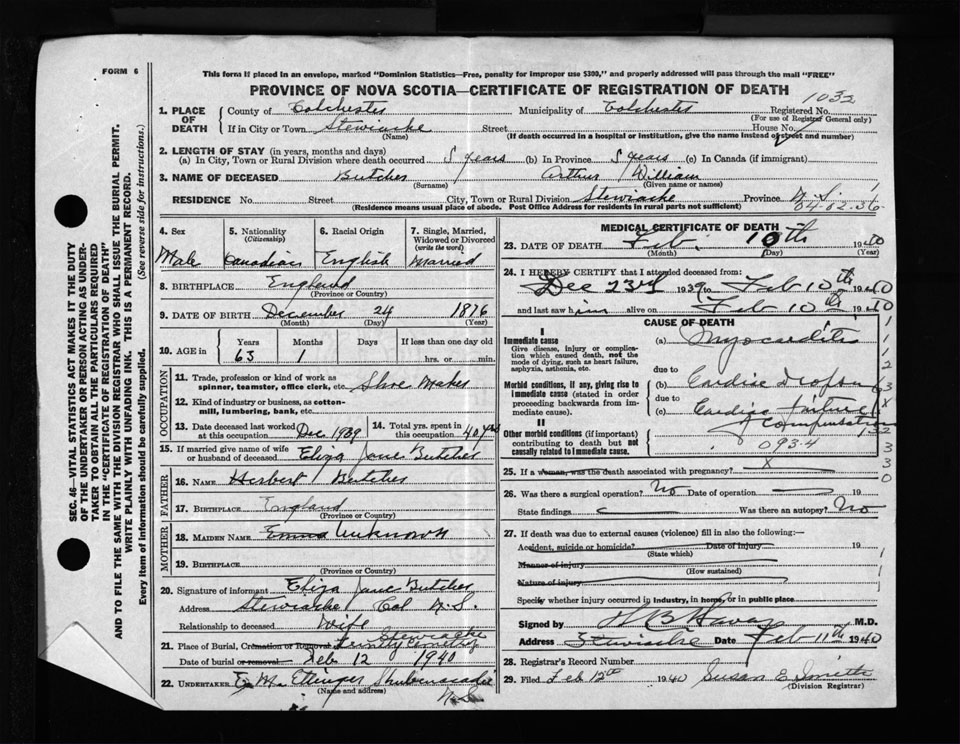 FORM 6
This form if placed in an envelope, marked "Dominion Statistics—Free, penalty for improper use $300," and properly addressed will pass through the mail "FREE"
PROVINCE OF NOVA SCOTIA—CERTIFICATE OF REGISTRATION OF DEATH
1032
1. PLACE OF DEATH County of Colchester Municipality of Colchester Registered No.
(For use of Registrar General only)
If in City or Town Stewiacke Street House No.
(Name) (If death occurred in a hospital or institution, give the name instead of street and number)
2. LENGTH OF STAY (in years, months and days)
(a) In City, Town or Rural Division where death occurred 5 years (b) In Province 5 years (c) In Canada (if immigrant)
3. NAME OF DECEASED Butcher Arthur William
(Surname) (Given name or names)
RESIDENCE No. Street City, Town or Rural Division Stewiacke Province N.S.
(Residence means usual place of abode. Post Office Address for residents in rural parts not sufficient)
4. Sex Male
5. Nationality (Citizenship) Canadian
6. Racial Origin English
7. Single, Married, Widowed or Divorced (write the word) Married
8. BIRTHPLACE England
(Province or Country)
9. DATE OF BIRTH December 24 1876
(Month) (Day) (Year)
10. AGE in Years 63 Months 1 Days If less than one day old hrs. or min.
OCCUPATION
11. Trade, profession or kind of work as spinner, teamster, office clerk, etc. Shoe Maker
12. Kind of industry or business, as cotton-mill, lumbering, bank, etc.
13. Date deceased last worked at this occupation Dec 1939
14. Total yrs. spent in this occupation 40 yrs
15. If married give name of wife or husband of deceased Eliza Jane Butcher
FATHER
16. NAME Herbert Butcher
17. BIRTHPLACE England
(Province or Country)
MOTHER
18. MAIDEN NAME Emma Unknown
19. BIRTHPLACE
(Province or Country)
20. Signature of informant Eliza Jane Butcher
Address Stewiacke Col N.S.
Relationship to deceased Wife
21. Place of Burial, Cremation or Removal Stewiacke
Date of burial or removal Feb 12 1940
22. UNDERTAKER Ettinger Shubenacadie
(Name and address) N.S.
MEDICAL CERTIFICATE OF DEATH
23. DATE OF DEATH Feb. 10th 1940
(Month) (Day) (Year)
24. I HEREBY CERTIFY that I attended deceased from:
Dec 23rd 1939 to Feb 10th 1940
and last saw him alive on Feb 10th 1940
CAUSE OF DEATH
I
Immediate cause
Give disease, injury or complication which caused death, not the mode of dying, such as heart failure, asphyxia, asthenia, etc.
(a) Myocarditis
due to
Morbid conditions, if any, giving rise to immediate cause (stated in order proceeding backwards from immediate cause).
(b) Cardiac Dropsy
due to
(c) Cardiac failure of compensation
II
Other morbid conditions (if important) contributing to death but not causally related to immediate cause.
093.4
25. If a woman, was the death associated with pregnancy? X
26. Was there a surgical operation? No Date of operation 19
State findings Was there an autopsy? No
27. If death was due to external causes (violence) fill in also the following:—
Accident, suicide or homicide? Date of injury 19
(State which)
Manner of injury
(How sustained)
Nature of injury
Specify whether injury occurred in industry, in home, or in public place
Signed by M.D.
Address Stewiacke Date Feb 11th 1940
28. Registrar's Record Number
29. Filed Feb 12th 1940 Susan E Smith
(Division Registrar)
SEC. 46—VITAL STATISTICS ACT MAKES IT THE DUTY
OF THE UNDERTAKER OR PERSON ACTING AS UNDER-
TAKER TO OBTAIN ALL THE PARTICULARS REQUIRED
IN THE "CERTIFICATE OF REGISTRATION OF DEATH"
AND TO FILE THE SAME WITH THE DIVISION REGISTRAR WHO SHALL ISSUE THE BURIAL PERMIT.
WRITE PLAINLY WITH UNFADING INK. THIS IS A PERMANENT RECORD.
Every item of Information should be carefully supplied. (See reverse side for instructions.)